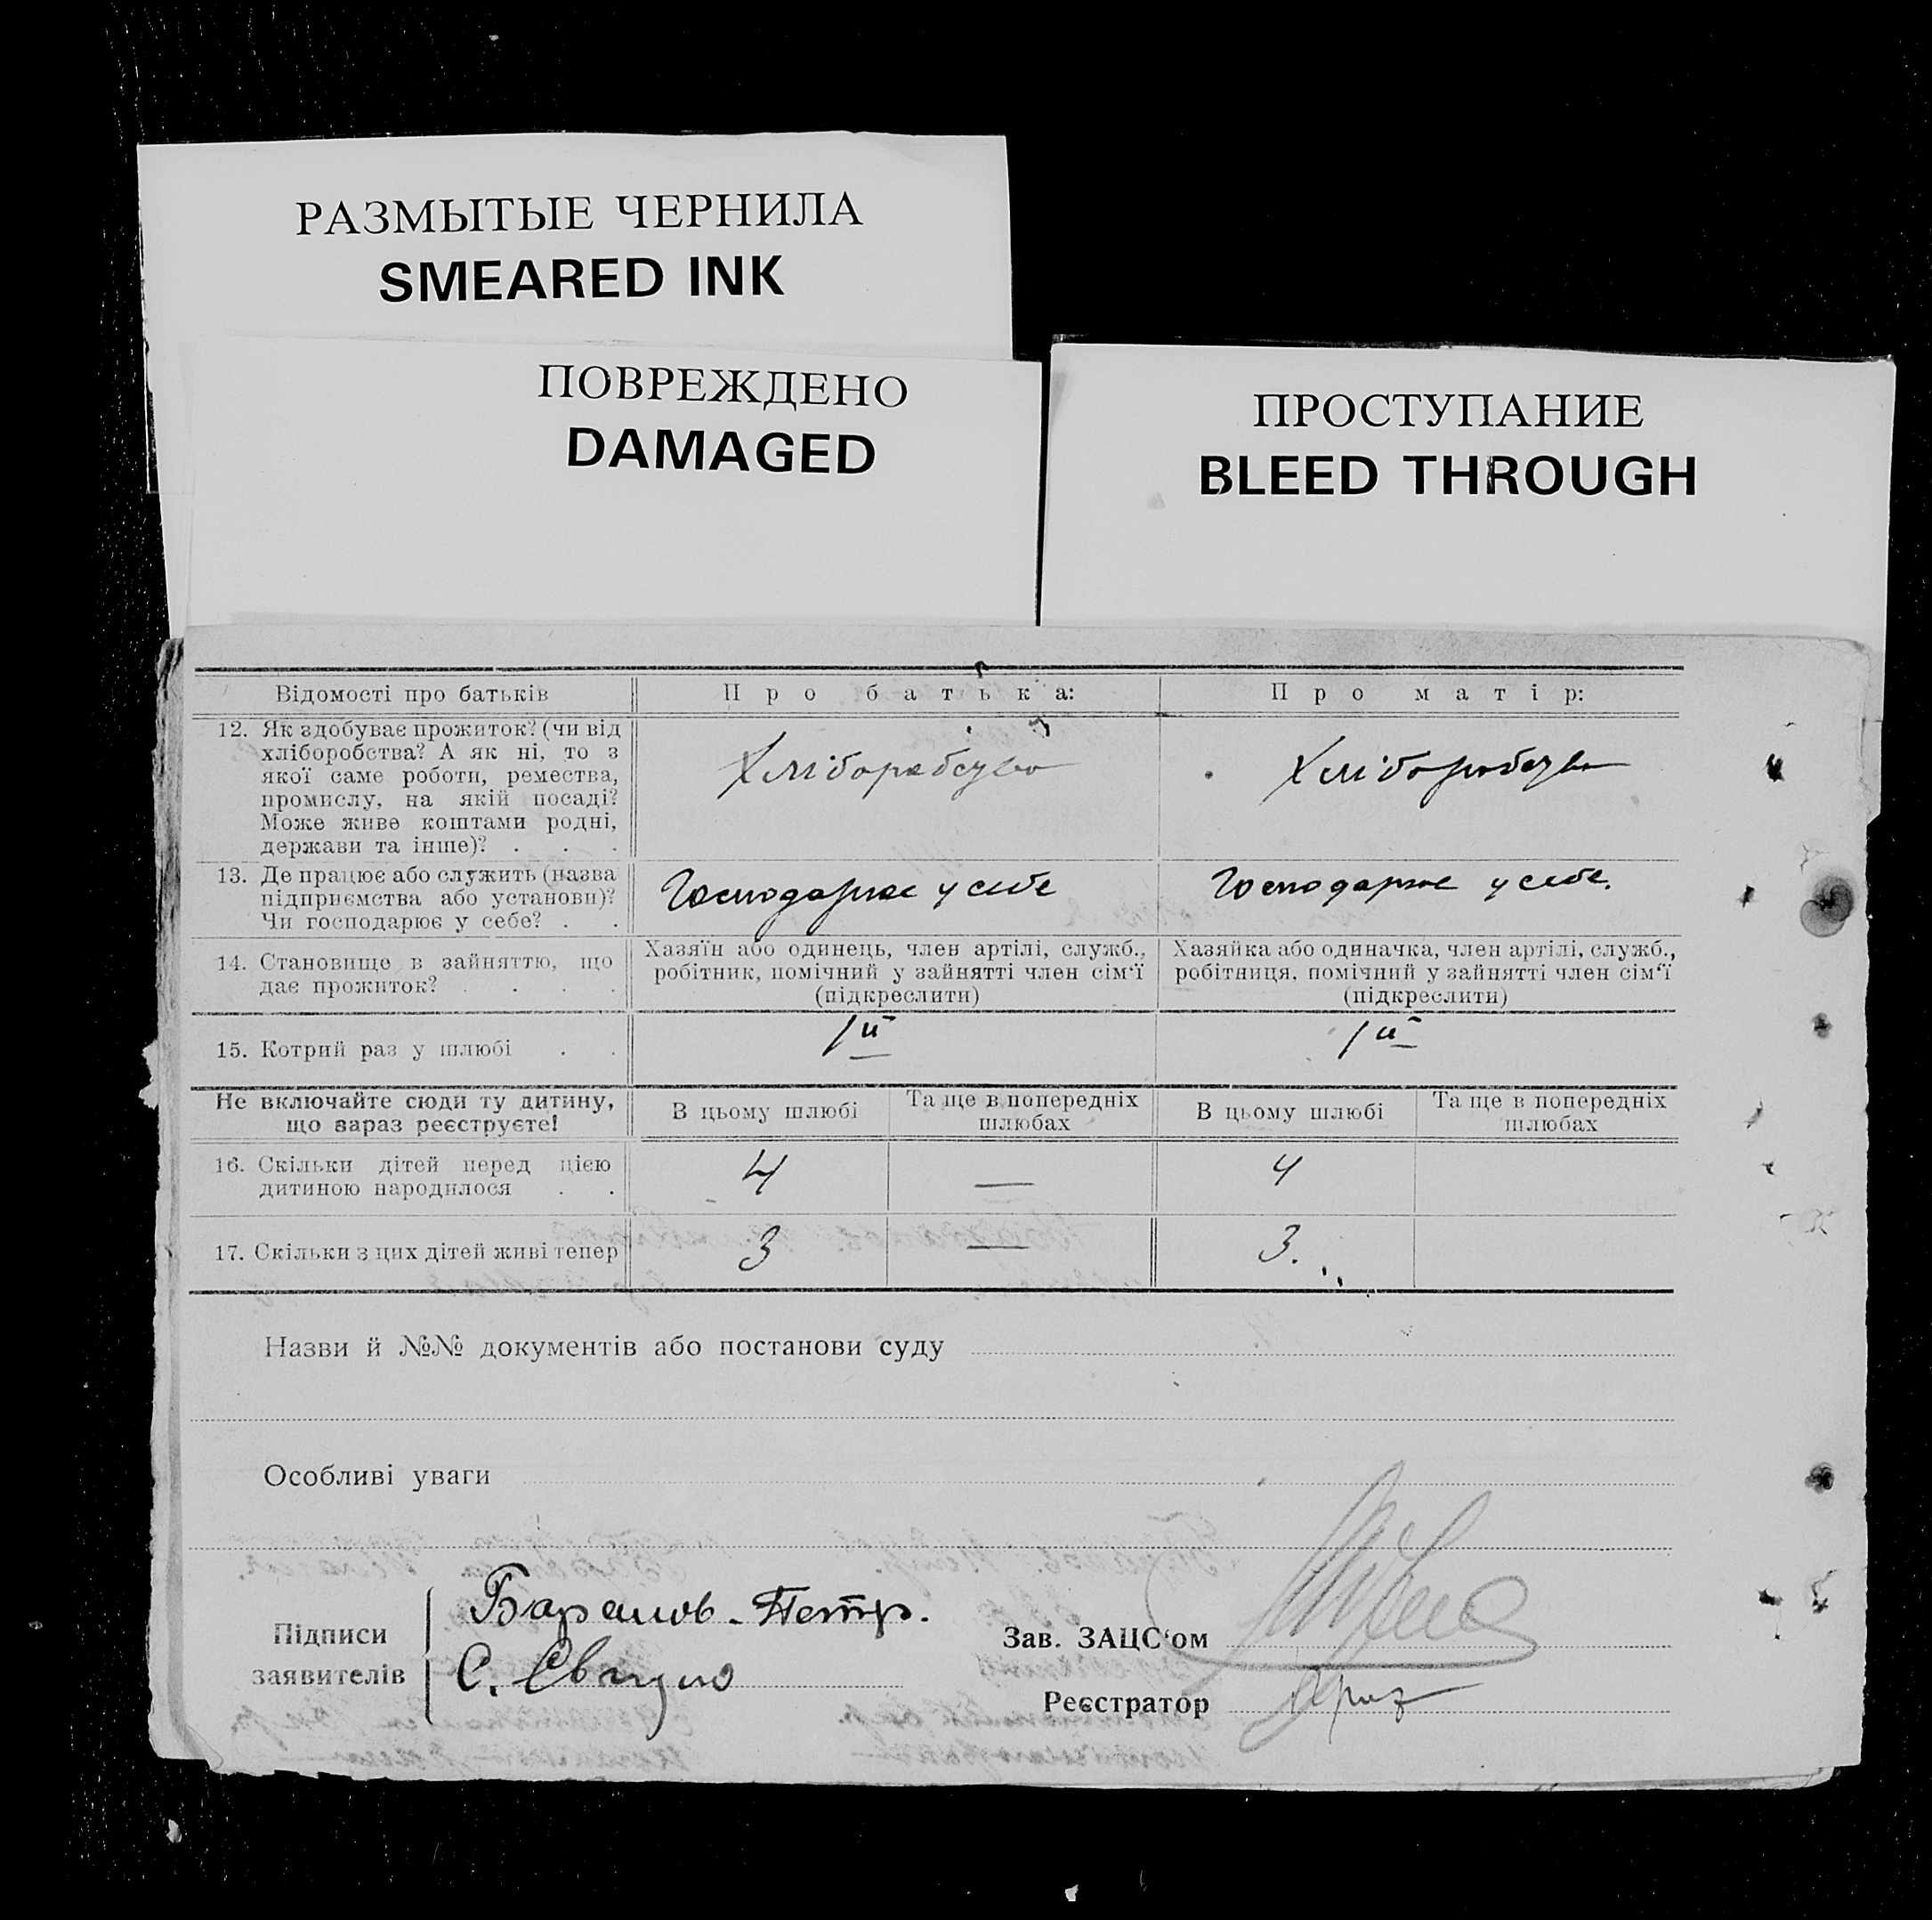 РАЗМЫТЫЕ ЧЕРНИЛА
SMEARED INK
ПОВРЕЖДЕНО
DAMAGED
ПРОСТУПАНИЕ
BLEED THROUGH
Відомості про батьків
Про батька:
Про матір:
12. Як здобуває прожиток? (чи від
хліборобства? А як ні, то з
якої саме роботи, ремества,
промислу, на якій посаді?
Може живе коштами родні,
держави та інше)? . . .
Хліборобство
Хліборобство
13. Де працює або служить (назва
підприємства або установи)?
Чи господарює у себе? . .
Господарює у себе
Господарює у себе.
14. Становище в зайняттю, що
дає прожиток? . . . .
Хазяїн або одинець, член артілі, служб.,
робітник, помічний у зайнятті член сім'ї
(підкреслити)
Хазяйка або одиначка, член артілі, служб.,
робітниця, помічний у зайнятті член сім'ї
(підкреслити)
15. Котрий раз у шлюбі . .
1й
1й
Не включайте сюди ту дитину,
що зараз реєструєте!
В цьому шлюбі
Та ще в попередніх
шлюбах
В цьому шлюбі
Та ще в попередніх
шлюбах
16. Скільки дітей перед цією
дитиною народилося . .
4
—
4
17. Скільки з цих дітей живі тепер
3
—
3.
Назви й №№ документів або постанови суду
Особливі уваги
Підписи
заявителів
Баранов. Петр.
Зав. ЗАЦС'ом
Реєстратор